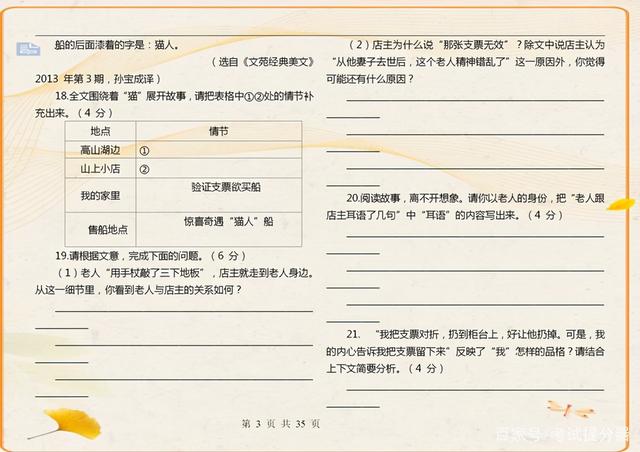 船的后面漆着的字是：猫人。
（选自《文苑经典美文》
2013 年第3期，孙宝成译）
18.全文围绕着“猫”展开故事，请把表格中①②处的情节补
充出来。（4 分）
地点 情节
高山湖边 ①
山上小店 ②
我的家里 验证支票欲买船
售船地点 惊喜奇遇“猫人”船
19.请根据文意，完成下面的问题。（6 分）
（1）老人“用手杖敲了三下地板”，店主就走到老人身边。
从这一细节里，你看到老人与店主的关系如何？
（2）店主为什么说“那张支票无效”？除文中说店主认为
“从他妻子去世后，这个老人精神错乱了”这一原因外，你觉得
可能还有什么原因？
20.阅读故事，离不开想象。请你以老人的身份，把“老人跟
店主耳语了几句”中“耳语”的内容写出来。（4 分）
21. “我把支票对折，扔到柜台上，好让他扔掉。可是，我
的内心告诉我把支票留下来”反映了“我”怎样的品格？请结合
上下文简要分析。（4 分）
第 3 页 共 35 页
百家号/考试提分器